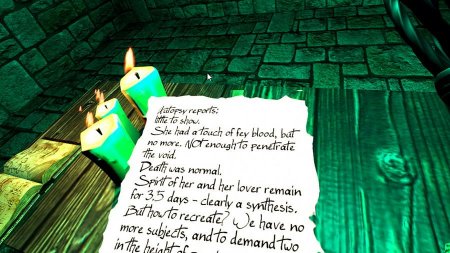 Autopsy reports:
little to show.
She had a touch of fey blood, but
no more. NOT enough to penetrate
the void.
Death was normal.
Spirit of her and her lover remain
for 3.5 days - clearly a synthesis.
But how to recreate? We have no
more subjects, and to demand two
in the height of